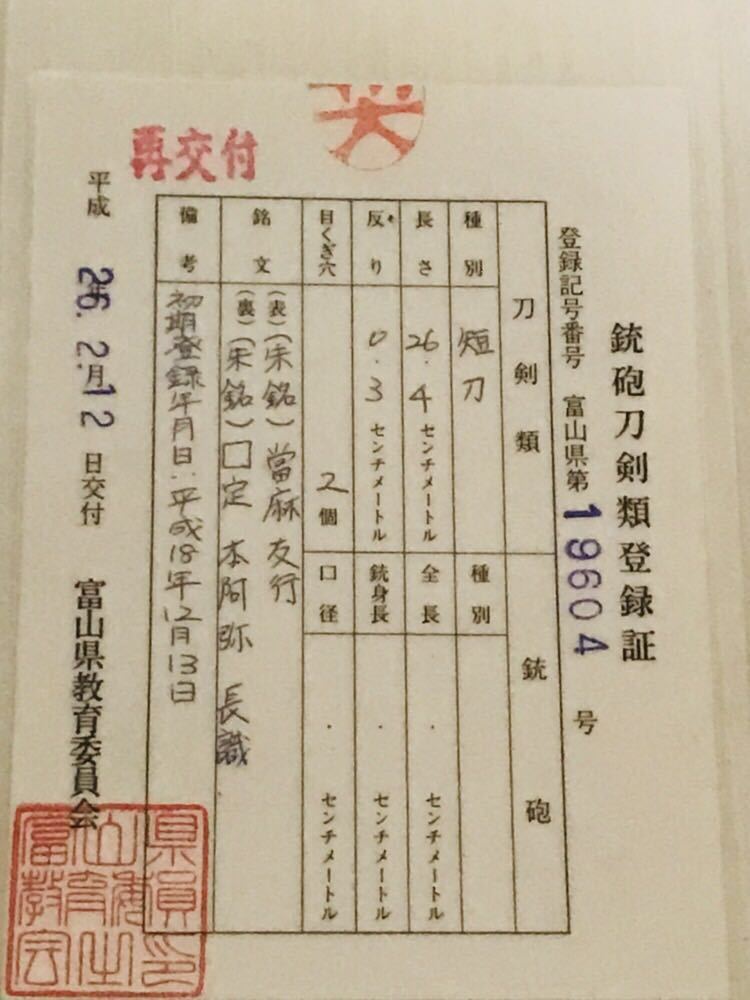 銃砲刀剣類登録証
登録記号番号 富山県第19604号
刀剣類
種別 短刀
長さ 26.4センチメートル
反り 0.3センチメートル
目くぎ穴 2個
銘文 (表)(朱銘)當麻友行
(裏)(朱銘)□定 本阿弥 長識
備考 初期登録年月日:平成18年12月13日
銃砲
種別
全長 .センチメートル
銃身長 .センチメートル
口径 .センチメートル
再交付
平成26年2月12日交付 富山県教育委員会
富山県教育委員会之印